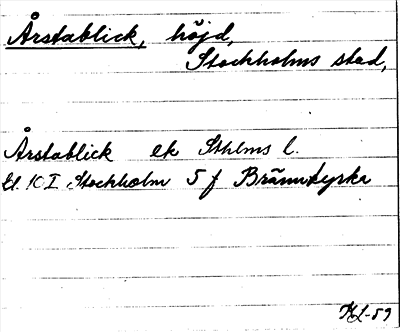 Årstablick, höjd,
Stockholms stad,
Årstablick ek Sthlms l.
bl. 10 I Stockholm 5 f Brännkyrka
KL-59